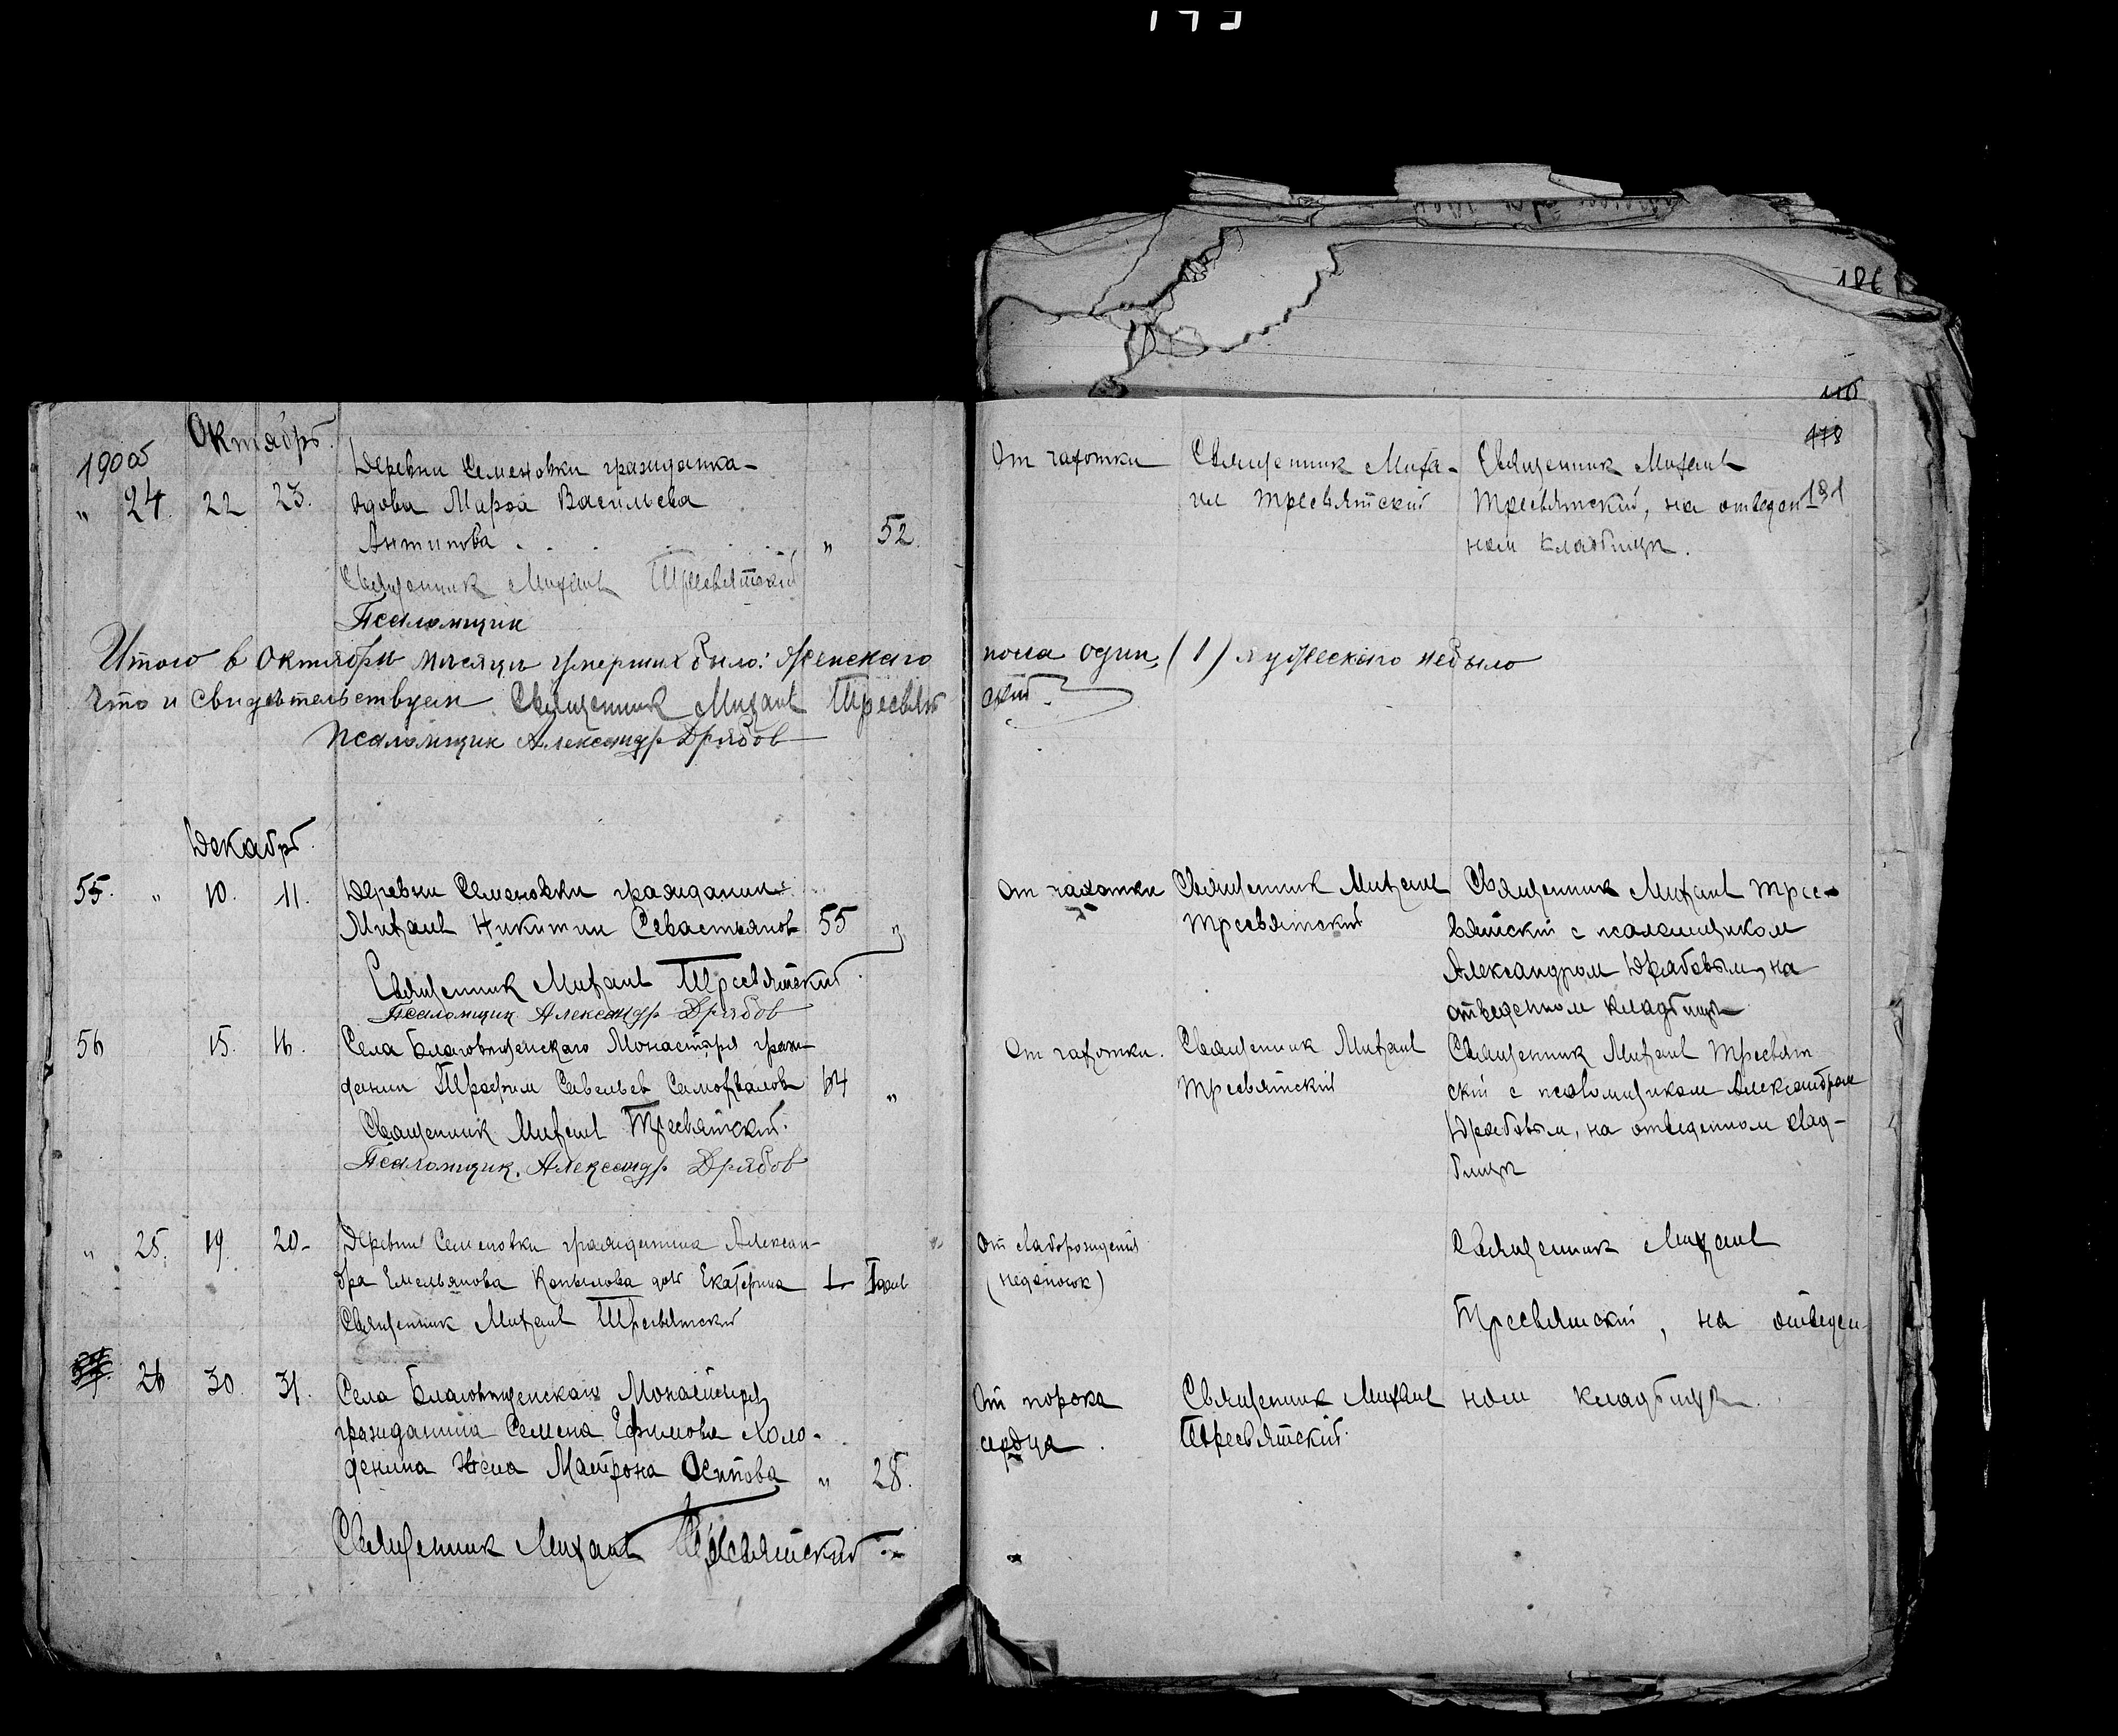 186
110
178
191
Октябрь.
" 24. 22 23.
Деревни Семеновки гражданка-
вдова Марfа Васильева
Антипова . . . . " 52.
От чахотки
Священник Миха-
ил Тресвятский
Священник Михаил
Тресвятский, на отведен-
ном кладбище.
Священник Михаил Тресвятский
Псаломщик
Итого в Октябре месяце умерших было: Женского пола один, (1) мужеского небыло
Что и свидетельствуем Священник Михаил Тресвятский.
Псаломщик Александр Дрябов
Декабрь.
55. " 10. 11.
Деревни Семеновки гражданин
Михаил Никитин Севастьянов 55 "
От чахотки
Священник Михаил
Тресвятский
Священник Михаил Трес-
вятский с псаломщиком
Александром Дрябовым, на
отведенном кладбище
Священник Михаил Тресвятский.
Псаломщик Александр Дрябов
56 15. 16.
Села Благовещенскаго Монастыря граж-
данин Трофим Савельев Самохвалов 64 "
От чахотки.
Священник Михаил
Тресвятский
Священник Михаил Тресвят
ский с псаломщиком Александром
Дрябовым, на отведенном клад-
бище
Священник Михаил Тресвятский.
Псаломщик. Александр Дрябов
" 25. 19. 20-
Деревни Семеновки гражданина Алексан-
дра Емельянова Копылова дочь Екатерина
От слаборождения
(недоносок)
Священник Михаил
Тресвятский, на отведен-
ном кладбище.
Священник Михаил Тресвятский
26 30. 31.
Села Благовещенскаго Монастыря
гражданина Семена Ефимова Холо-
денина жена Матрона Осипова " 28.
От порока
сердца.
Священник Михаил
Тресвятский.
Священник Михаил Тресвятский